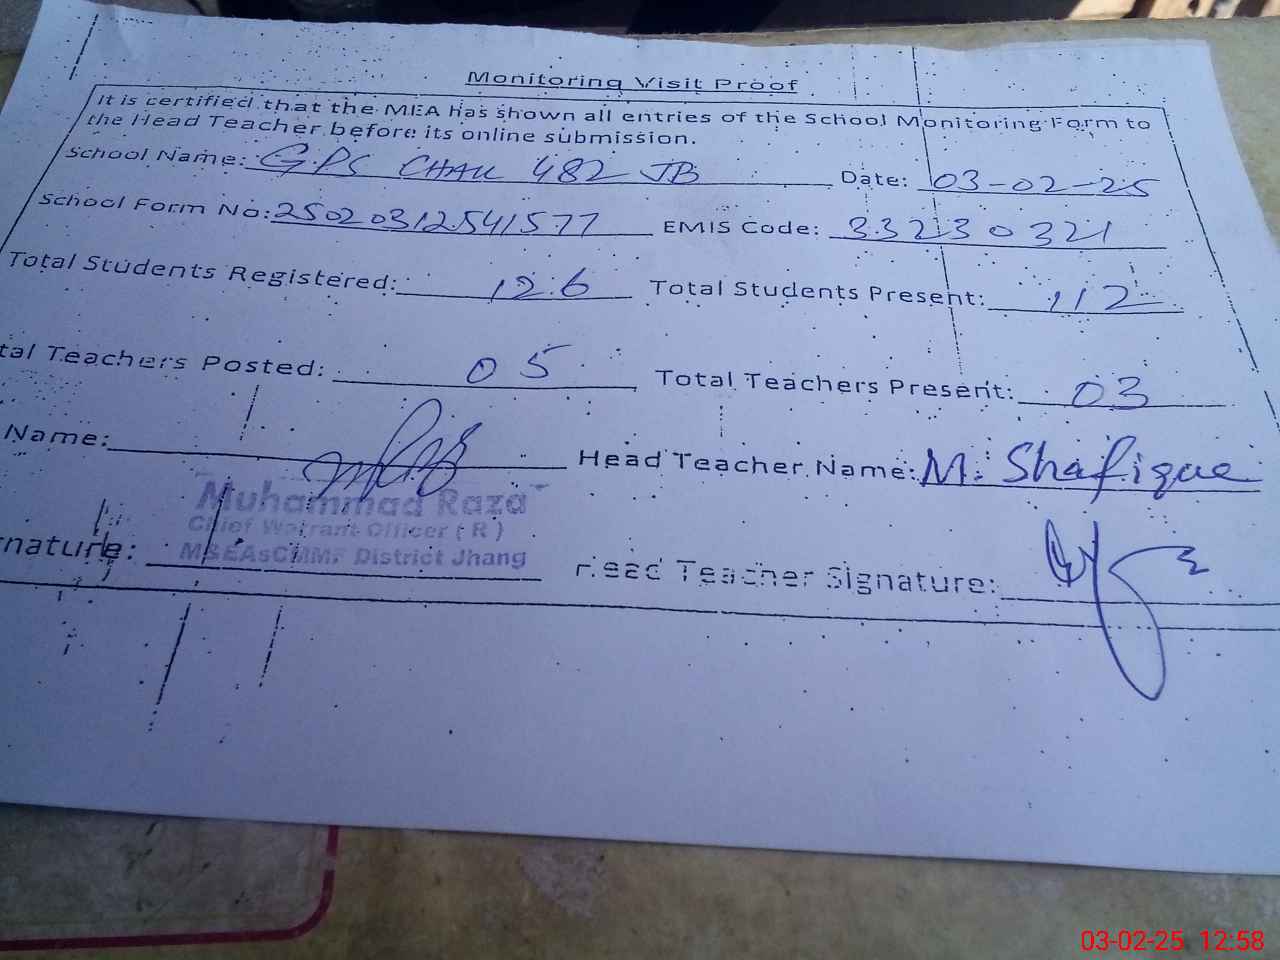 Monitoring Visit Proof
It is certified that the MEA has shown all entries of the School Monitoring Form to
the Head Teacher before its online submission.
School Name: GPS CHAK 482 JB Date: 03-02-25
School Form No: 25020312541577 EMIS Code: 33230321
Total Students Registered: 126 Total Students Present: 112
tal Teachers Posted: 05 Total Teachers Present: 03
Name: Head Teacher Name: M. Shafique
Muhammad Raza
Chief Warrant Officer ( R )
nature: M&EAsCMMF District Jhang Head Teacher Signature:
03-02-25 12:58